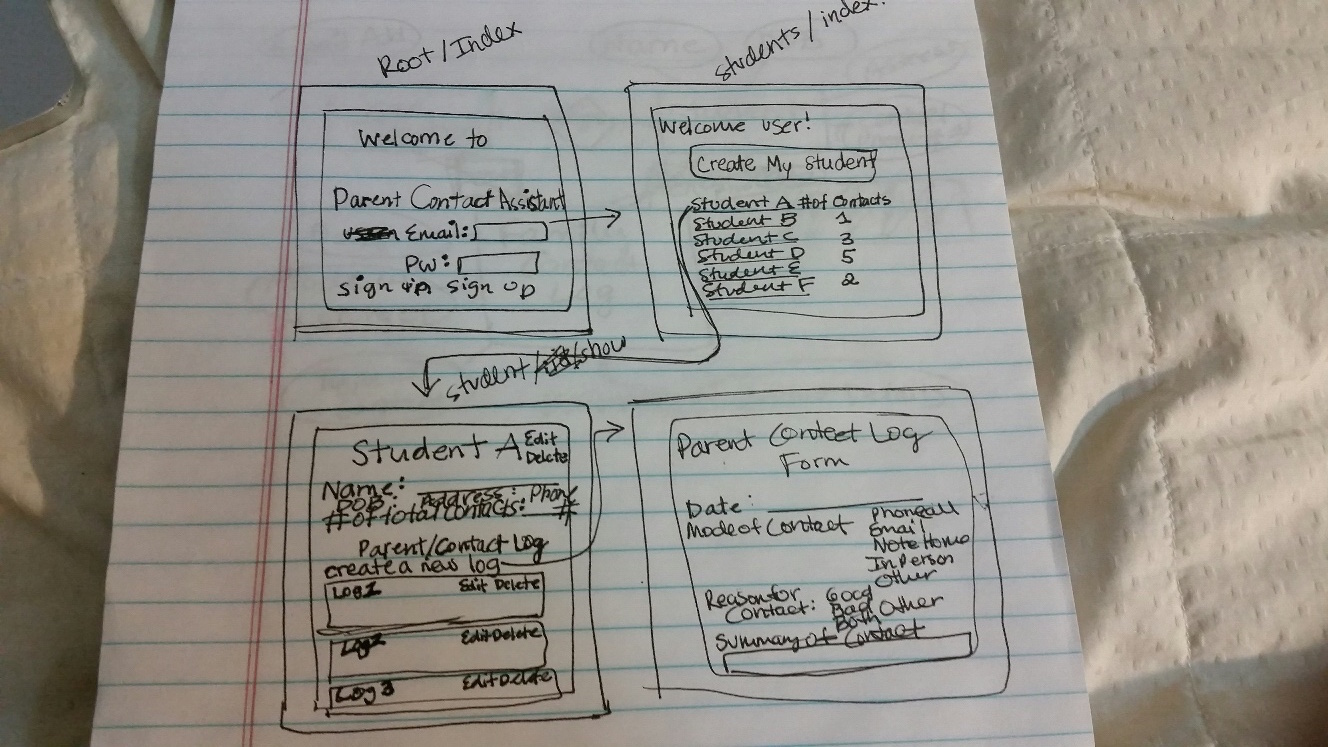 Root/Index
Welcome to
Parent Contact Assistant
Email:
PW:
sign in sign up
students/index
Welcome user!
Create My Student
Student A # of Contacts
Student B 1
Student C 3
Student D 5
Student E
Student F 2
student/ /show
Student A
Edit
Delete
Name:
DOB: Address: Phone
# of total contacts: #
Parent/Contact Log
create a new log
Log 1 Edit Delete
Log 2 Edit Delete
Log 3 Edit Delete
Parent Contect Log
Form
Date:
Mode of Contact phonecall
Email
Note Home
In Person
Other
Reason for Good
Contact: Bad Other
Both
Summary of Contact